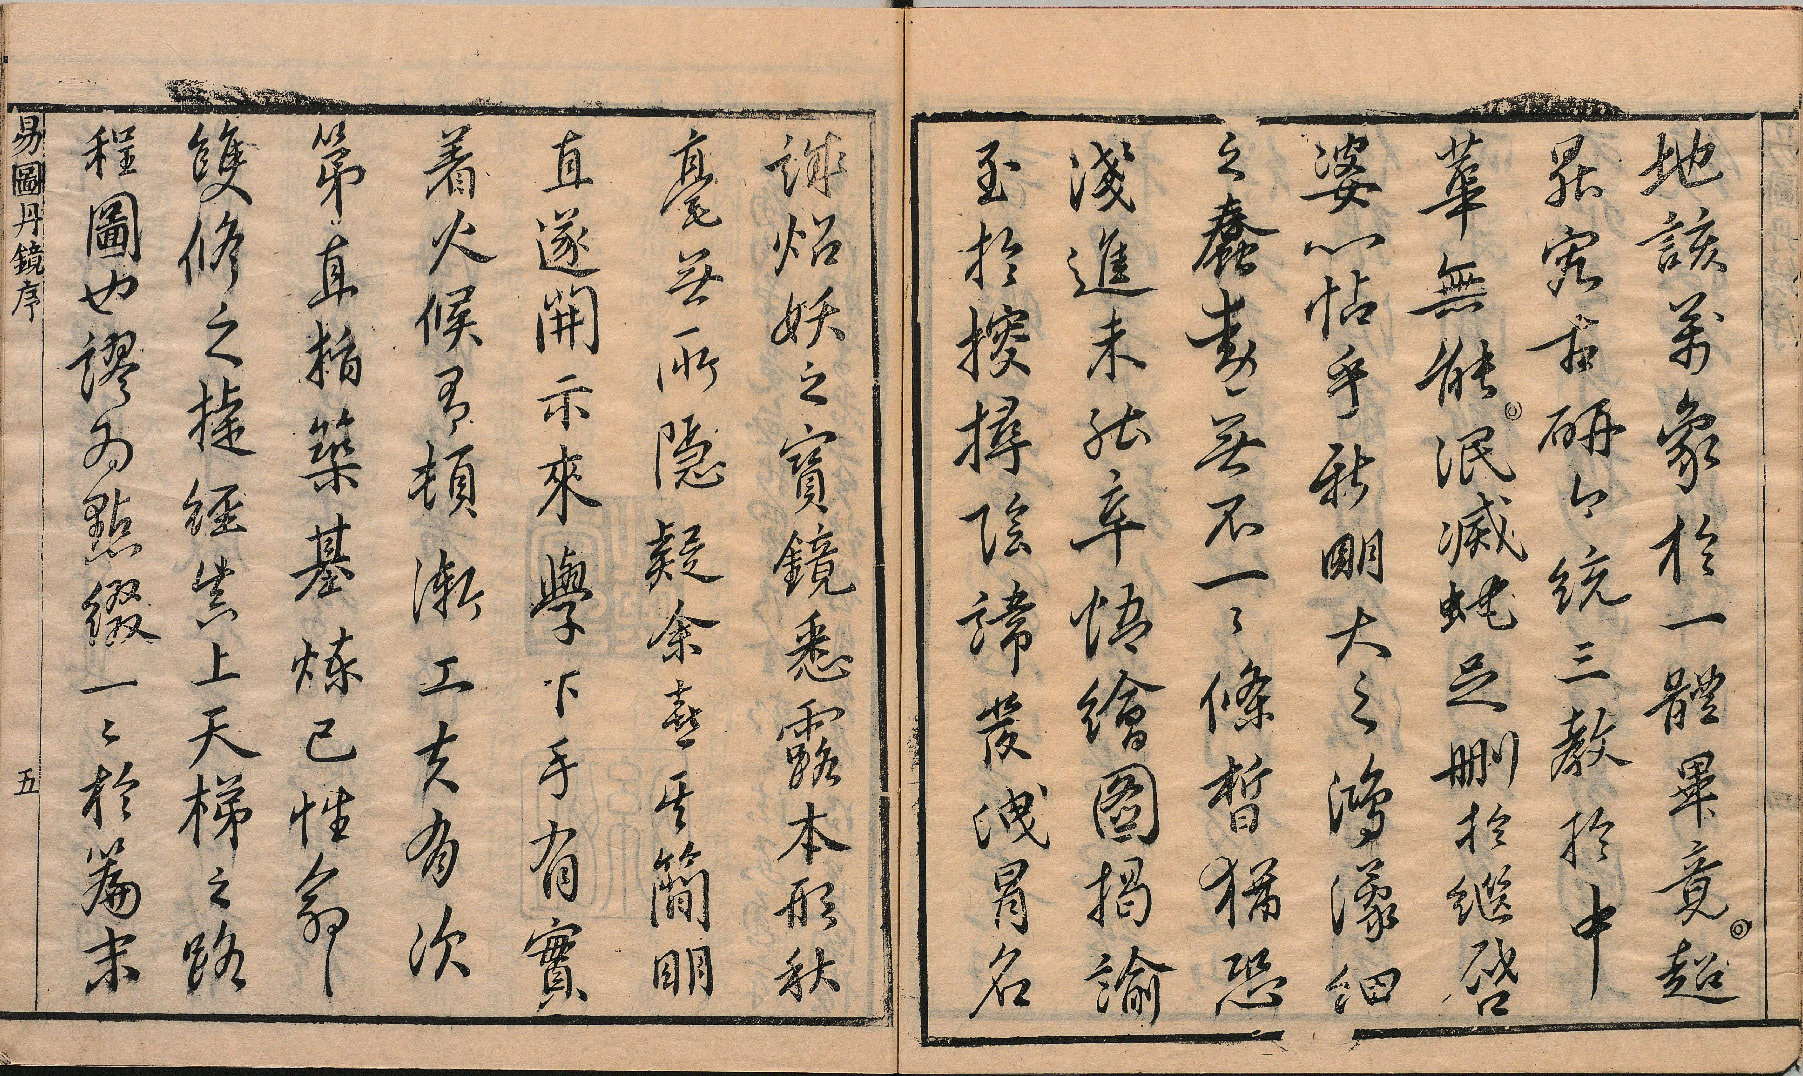 地該萬象於一體畢竟超
最容古研今統三教於中
華無能泯滅蚝足刪於繼啓
婆心怗手新開大之鴻濛細
之蠢動無不一〻條晳猶恐
淺進未能卒悟繪圖揭諭
至於搜擇陰諦發洩冒名
誅炤妖之寶鏡悉露本形秋
毫無所隱疑余喜其簡明
直遂開示來學下手有實
着火候有頓漸工夫有次
第直指築基煉己性命
雙修之捷徑眞上天梯之路
程圖也謬為點綴一〻於篇末
易圖丹鏡序
五